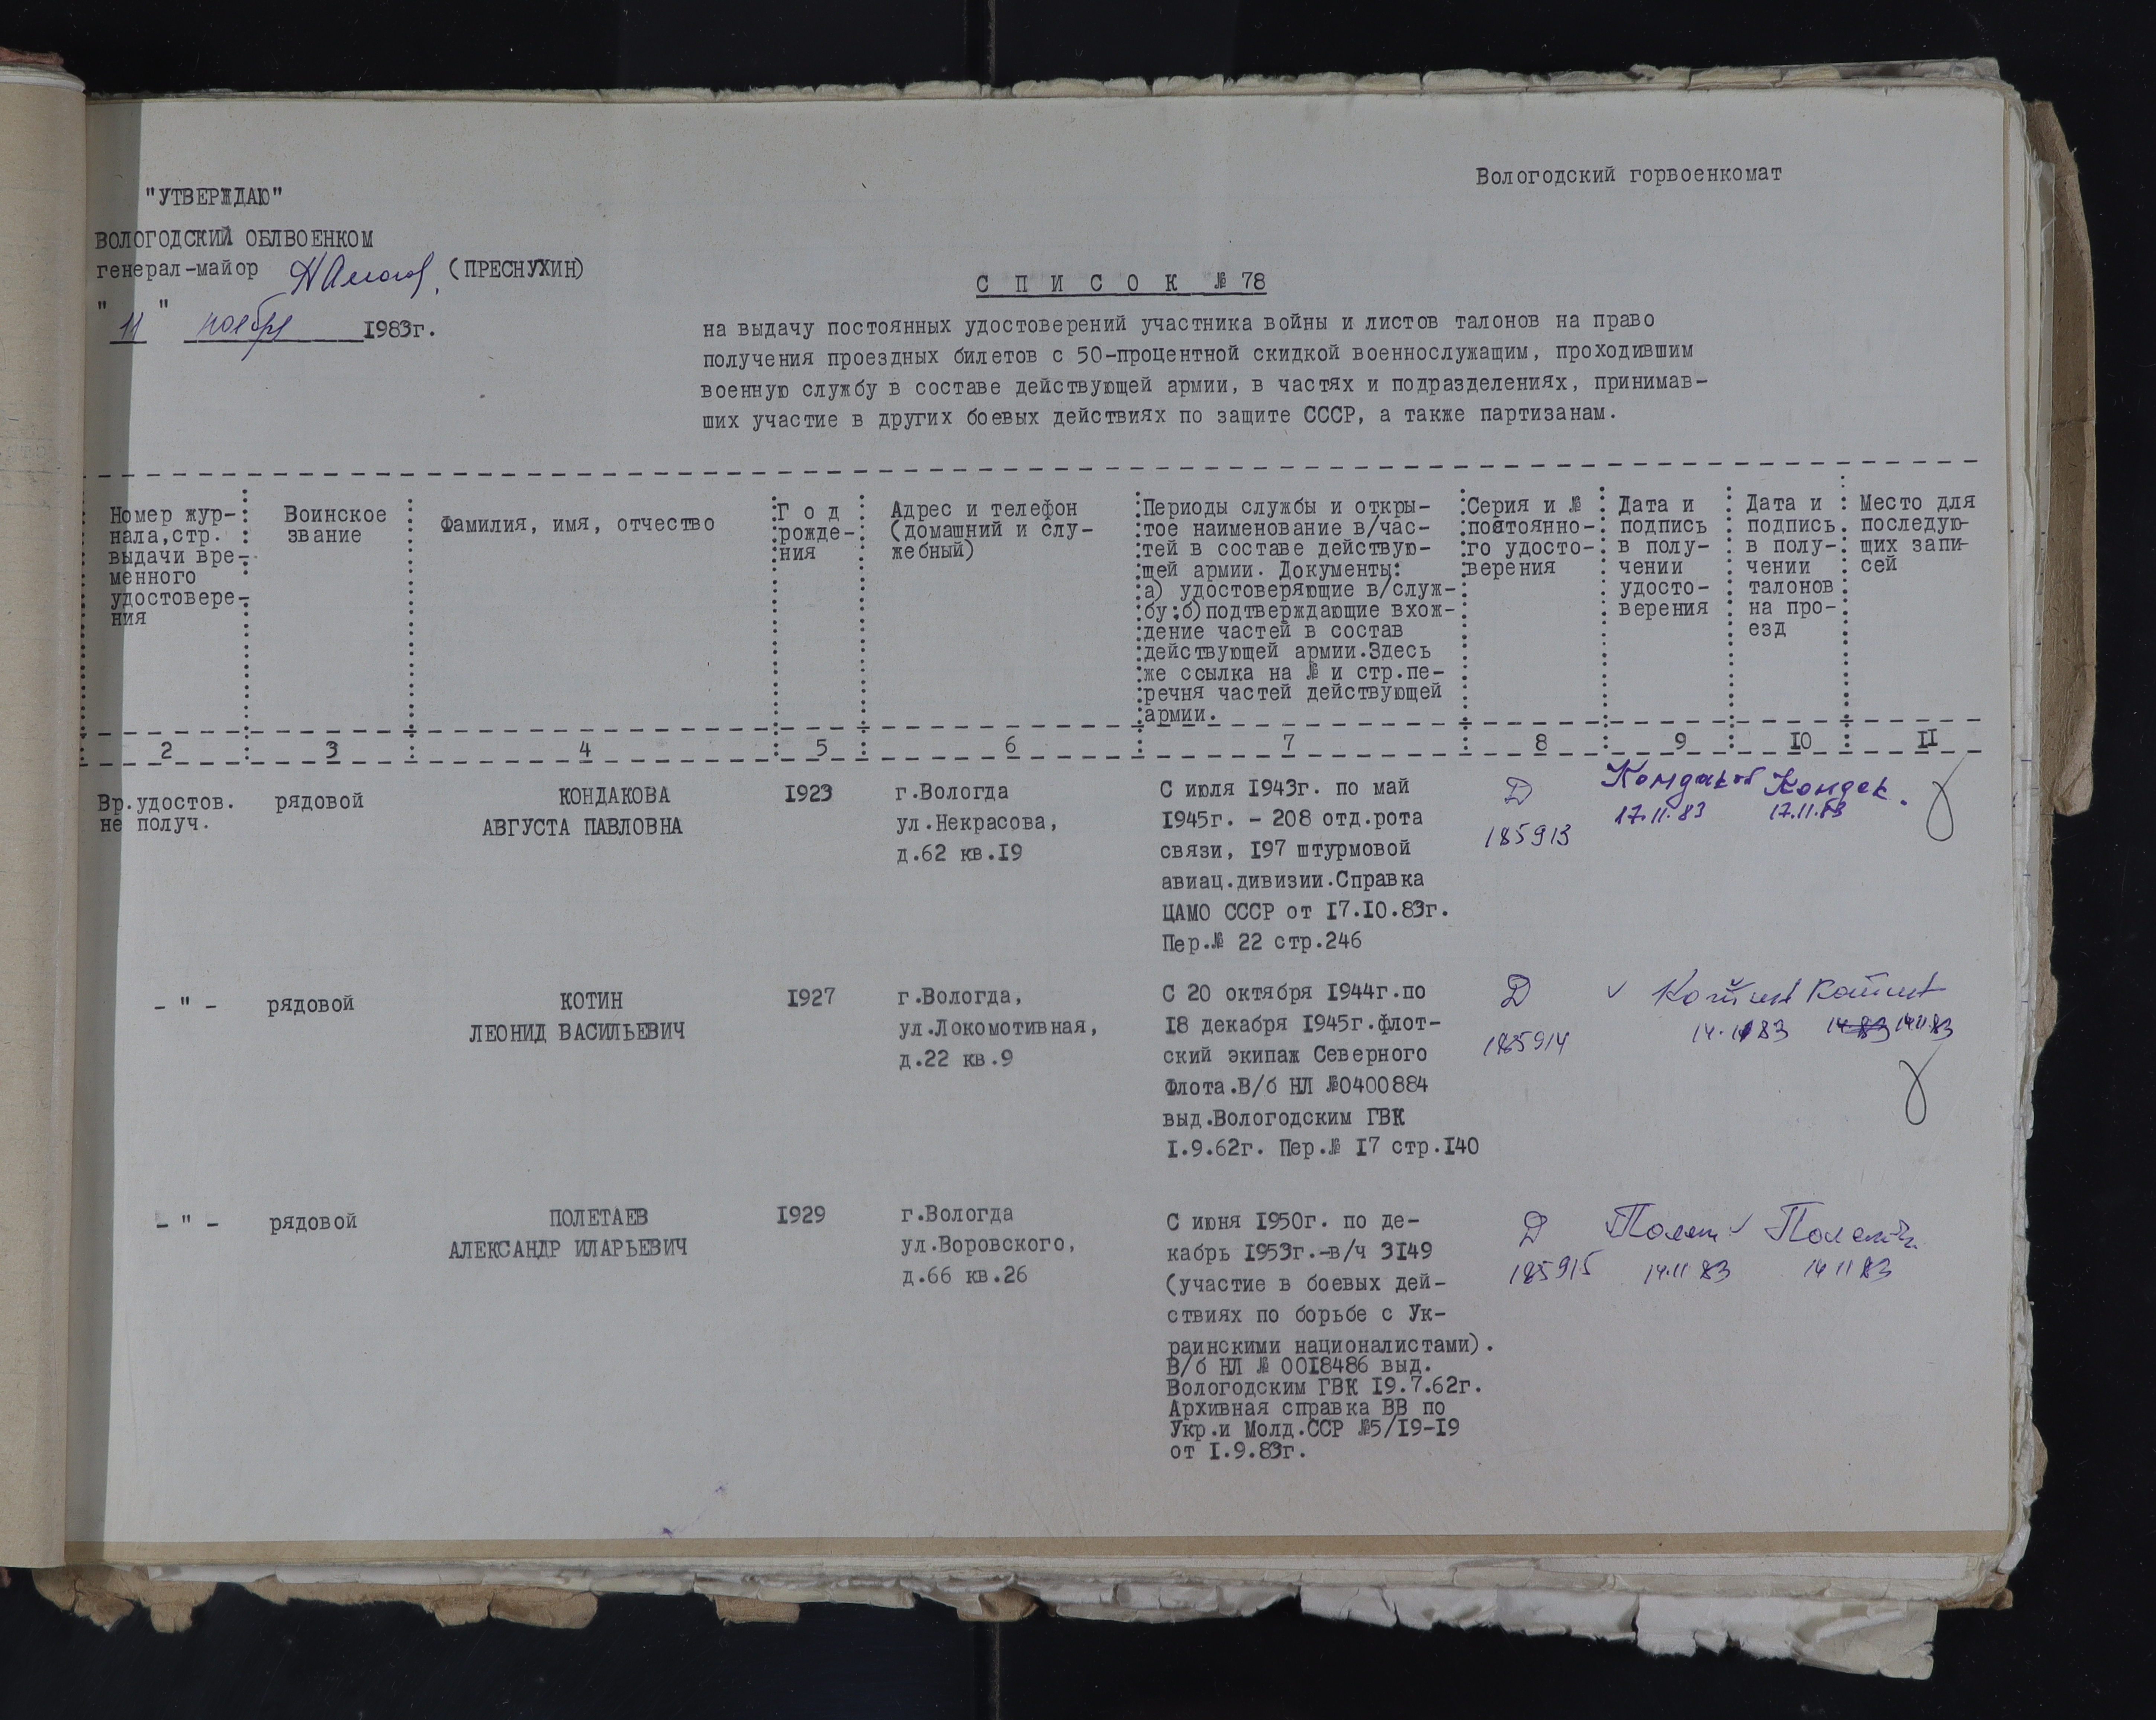 Вологодский горвоенкомат
"УТВЕРЖДАЮ"
ВОЛОГОДСКИЙ ОБЛВОЕНКОМ
генерал-майор (ПРЕСНУХИН)
"11" ноября 1983г.
С П И С О К № 78
на выдачу постоянных удостоверений участника войны и листов талонов на право
получения проездных билетов с 50-процентной скидкой военнослужащим, проходившим
военную службу в составе действующей армии, в частях и подразделениях, принимав-
ших участие в других боевых действиях по защите СССР, а также партизанам.
Номер жур-
нала,стр.
выдачи вре-
менного
удостовере-
ния
Воинское
звание
Фамилия, имя, отчество
Г о д
рожде-
ния
Адрес и телефон
(домашний и слу-
жебный)
Периоды службы и откры-
тое наименование в/час-
тей в составе действую-
щей армии. Документы:
а) удостоверяющие в/служ-
бу;б)подтверждающие вхож-
дение частей в состав
действующей армии.Здесь
же ссылка на № и стр.пе-
речня частей действующей
армии.
Серия и №
постоянно-
го удосто-
верения
Дата и
подпись
в полу-
чении
удосто-
верения
Дата и
подпись
в полу-
чении
талонов
на про-
езд
Место для
последую-
щих запи-
сей
2 3 4 5 6 7 8 9 IO II
Вр.удостов.
не получ.
рядовой
КОНДАКОВА
АВГУСТА ПАВЛОВНА
I923
г.Вологда
ул.Некрасова,
д.62 кв.I9
С июля I943г. по май
I945г. - 208 отд.рота
связи, I97 штурмовой
авиац.дивизии.Справка
ЦАМО СССР от I7.IO.83г.
Пер.№ 22 стр.246
Д
185913
Кондаков
17.11.83
Кондак.
17.11.83
- " -
рядовой
КОТИН
ЛЕОНИД ВАСИЛЬЕВИЧ
I927
г.Вологда,
ул.Локомотивная,
д.22 кв.9
С 20 октября I944г.по
I8 декабря I945г.флот-
ский экипаж Северного
Флота.В/б НЛ №0400884
выд.Вологодским ГВК
I.9.62г. Пер.№ I7 стр.I40
Д
185914
Котин
14.11 83
Котин
14.83 14.11.83
- " -
рядовой
ПОЛЕТАЕВ
АЛЕКСАНДР ИЛАРЬЕВИЧ
I929
г.Вологда
ул.Воровского,
д.66 кв.26
С июня I950г. по де-
кабрь I953г.-в/ч 3I49
(участие в боевых дей-
ствиях по борьбе с Ук-
раинскими националистами).
В/б НЛ № 00I8486 выд.
Вологодским ГВК I9.7.62г.
Архивная справка ВВ по
Укр.и Молд.ССР №5/I9-I9
от I.9.83г.
Д
185915
14.11 83
14 11 83